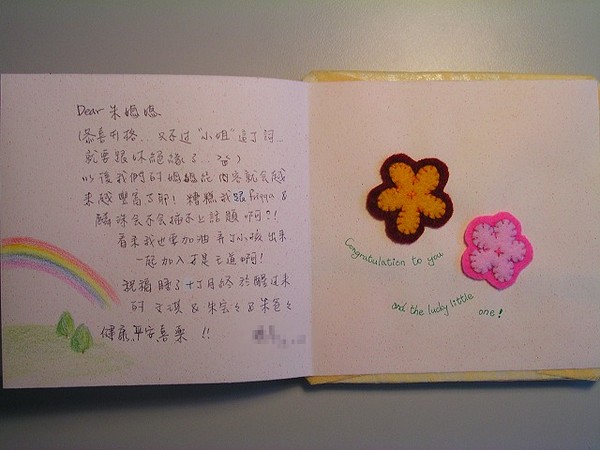 Dear 朱媽媽
(恭喜升格... 只不過 "小姐" 這ㄒ詞...
就要跟妳絕緣了...
以後我們的媽媽話內容就會越
來越豐富了耶! 糟糕我跟 &
麟珠會不會插不上話題啊?!
看來我也要加油弄ㄒ小孩出來
一起加入才是王道啊!
祝福睡了十ㄒ月終於醒過來
的 & 朱宏々 & 朱爸々
健康平安喜樂 !!
Congratulation to you
and the lucky little one!